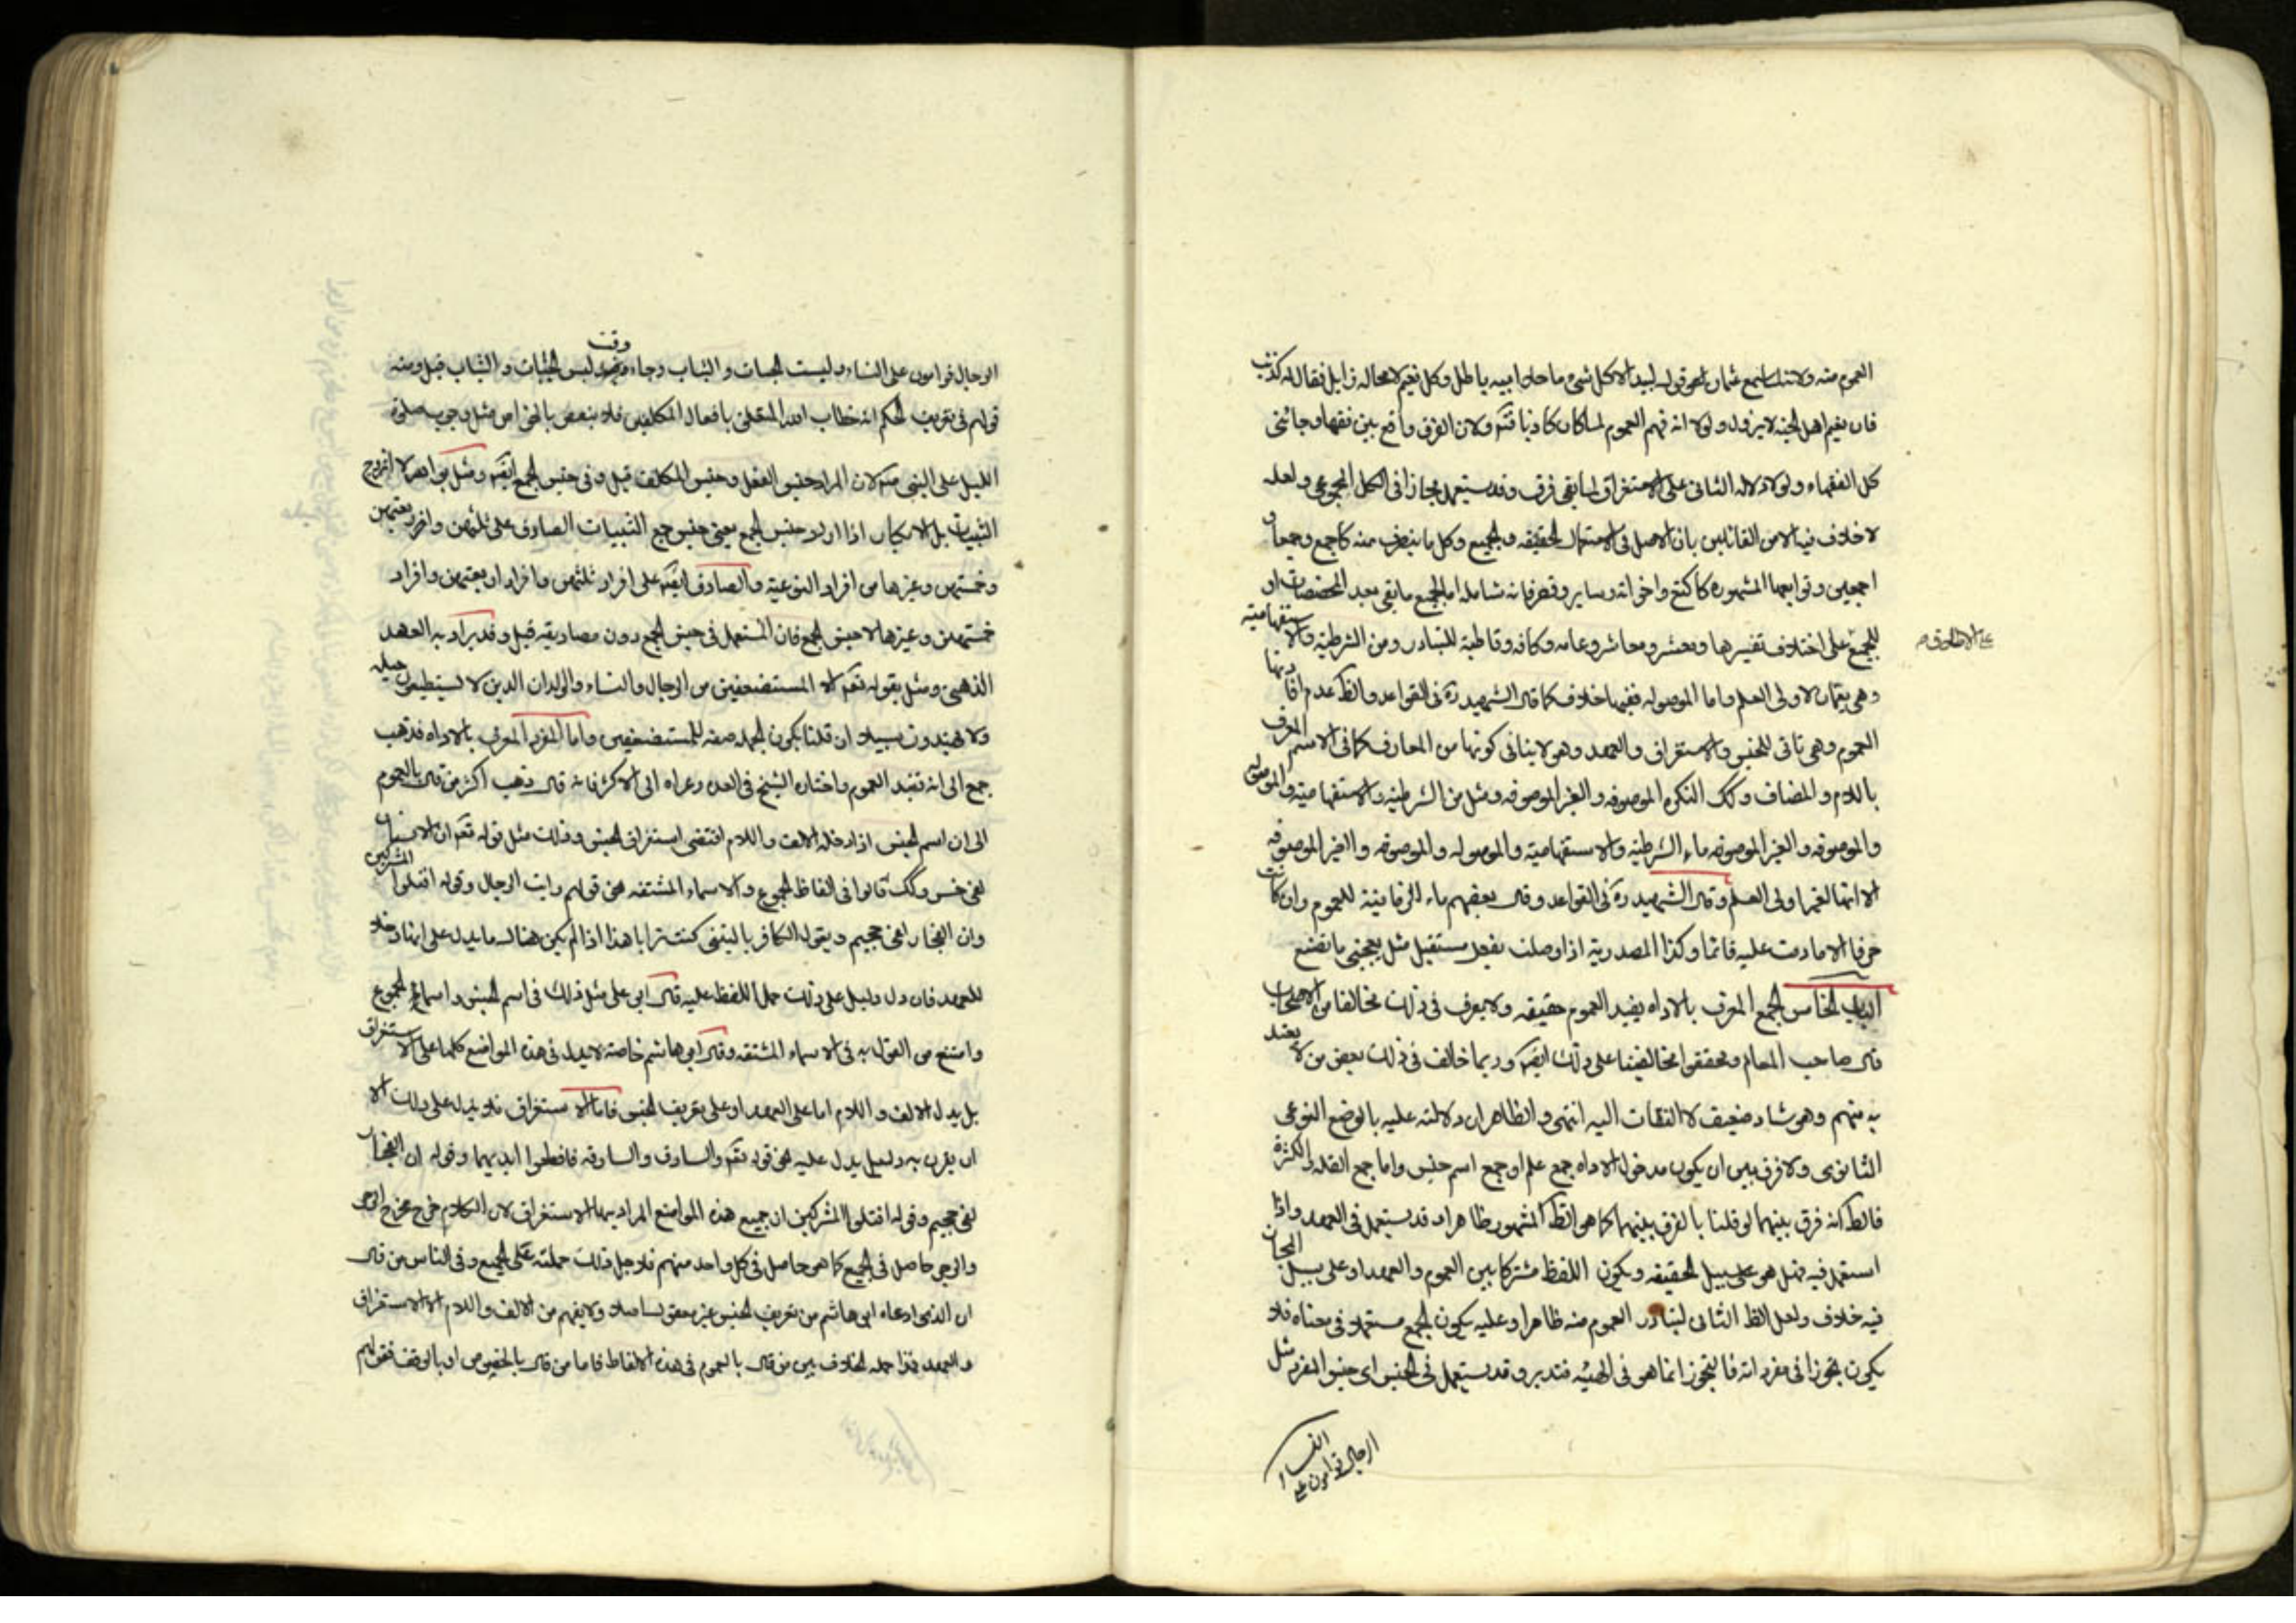 العموم منه ولانه لما سمع عثمان قول لبيد الا كل شئ ما خلا الله باطل وكل نعيم لا محاله زايل فقال له كذبت
فان نعيم اهل الجنه لا يزول ولولا انه فهم العموم لما كان كاذبا قتم ولان الفرق واقع بين فقها وجائنى
كل الفقهاء ولولا دلاله الثانى على الاستغراق لما بقى فرق وقد يستعمل مجازا فى الكل المجموعى ولعله
لا خلاف فيه الا من القائلين بان الاصل فى الاستعمال الحقيقه والجميع وكل ما يتصرف منه كاجمع وجمعا و
اجمعين وتوابعها المشهوره كاكتع واخواته وساير وقصر فانه شامله اما لجميع ما بقى بعد المخصصات او
للجميع على اختلاف تفسيرها ومعشر ومعاشر وعامه وكافه وقاطبة للتبادر ومن الشرطية والاستفهامية
على الاظهر
وهى يعمان لاولى العلم واما الموصوله ففيها خلاف كما قال الشهيد ره فى القواعد والظ عدم افادتها
العموم وهى تاتى للجنس والاستغراق والعهد وهو لا ينافى كونها من المعارف كما فى الاسم المعرف
باللام والمضاف وكك النكره الموصوفه والغير الموصوفه ومثل من الشرطية والاستفهامية والموصوله
والموصوفه والغير الموصوفه ماء الشرطية والاستفهامية والموصوله والموصوفه والغير الموصوفه
الا انها لغير اولى العلم وقال الشهيد ره فى القواعد وقال بعضهم ماء الزمانية للعموم وان كانت
حرفا الا ما دمت عليه قائما وكذا المصدرية اذا وصلت بفعل مستقبل مثل يعجبنى ما تصنع
الباب الخامس الجمع المعرف بالاداه يفيد العموم حقيقه ولا يعرف فى ذلك مخالفا من الاصحاب
قال صاحب المعالم ومحققوا مخالفينا على ذلك ايضا وربما خالف فى ذلك بعض من لا يعتد
به منهم وهو شاد ضعيف لا التفات اليه انتهى والظاهر ان دلالته عليه بالوضع النوعى
الثانوى ولا فرق بين ان يكون مدخول الاداه جمع علم او جمع اسم جنس واما جمع القله والكثرة
فالظ انه فرق بينهما لو قلنا بالفرق بينهما كما هو الظ المشهور ظاهرا وقد يستعمل فى العهد واذا
استعمل فيه فهل هو على سبيل الحقيقه ويكون اللفظ مشتركا بين العموم والعهد او على سبيل المجاز
فيه خلاف ولعل الظ الثانى لتبادر العموم منه ظاهرا وعليه يكون الجمع مستعملا فى معناه فلا
يكون تجوزا فى مفرداته فالتجوز انما هو فى الهيئه فتدبر وقد يستعمل فى الجنس اى جنس المفرد مثل
الرجال قوامون على النسا
الرجال قوامون على النساء وليست الجبات والثياب وجاء وقت لبس الجبات والثياب قيل ومنه
قولهم فى تعريف الحكم انه خطاب الله المتعلق بافعال المكلفين فلا ينقض بالخواص مثل وجوب صلوة
الليل على النبى ص لان المراد جنس الفعل وجنس المكلف قيل وفى جنس الجمع ايضا ومثل لا اتزوج
الثيبات بل الابكار اذا اراد جنس الجمع يعنى جنس جمع الثيبات الصادق على ثلثهن واربعتهن
وخمستهن وغيرها من افراد النوعية والصادق ايضا على افراد ثلثهن وافراد اربعتهن وافراد
خمستهن وغيرها لا جنس الجمع فان المستعمل فى جنس الجمع دون مصاديقه قيل وقد يراد به العهد
الذهنى ومثل بقوله تعالى الا المستضعفين من الرجال والنساء والولدان الذين لا يستطيعون حيله
ولا يهتدون سبيلا ان قلنا بكون الجمله صفه للمستضعفين واما المفرد المعرف بالاداه فذهب
جمع الى انه تفيد العموم واختاره الشيخ فى العده وعزاه الى الاكثر فانه قال ذهب اكثر من قال بالعموم
الى ان اسم الجنس اذا دخله الالف واللام اقتضى استغراق الجنس وذلك مثل قوله تعالى ان الانسان
لفى خسر وكك قالوا فى الفاظ الجموع والاسماء المشتقه نحو قولهم رايت الرجال وقوله اقتلوا المشركين
وان الفجار لفى جحيم ويقول الكافر يا ليتنى كنت ترابا هذا اذا لم يكن هناك ما يدل على انها
للعهد فان دل دليل على ذلك حمل اللفظ عليه قال ابى على مثل ذلك فى اسم الجنس واسماء الجموع
وامتنع من القول به فى الاسماء المشتقه وقال ابى هاشم خاصه لا يدل فى هذه المواضع كلها على الاستغراق
بل يدل الالف واللام اما على العهد او على تعريف الجنس فاما الاستغراق فلا يدل على ذلك الا
ان يقرن به دليل يدل عليه نحو قوله تعالى والسارق والسارقه فاقطعوا ايديهما وقوله ان الفجار
لفى جحيم وقوله اقتلوا المشركين ان جميع هذه المواضع المراد بها الاستغراق لان الكلام خرج مخرج الزجر
والزجر حاصل فى الجميع كما هو حاصل فى كل واحد منهم فلاجل ذلك حملته على الجميع وفى الناس من قال
ان الذى ادعاه ابى هاشم من تعريف الجنس غير معقول اصلا ولا يفهم من الالف واللام الا الاستغراق
والعهد فهذا جمله الخلاف بين من قال بالعموم فى هذه الالفاظ فاما من قال بالخصوص او بالوقف فقولهم